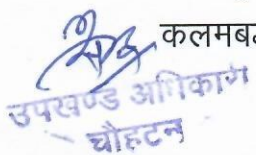 कलमबद
उपखण्ड अधिकारी
चौहटन